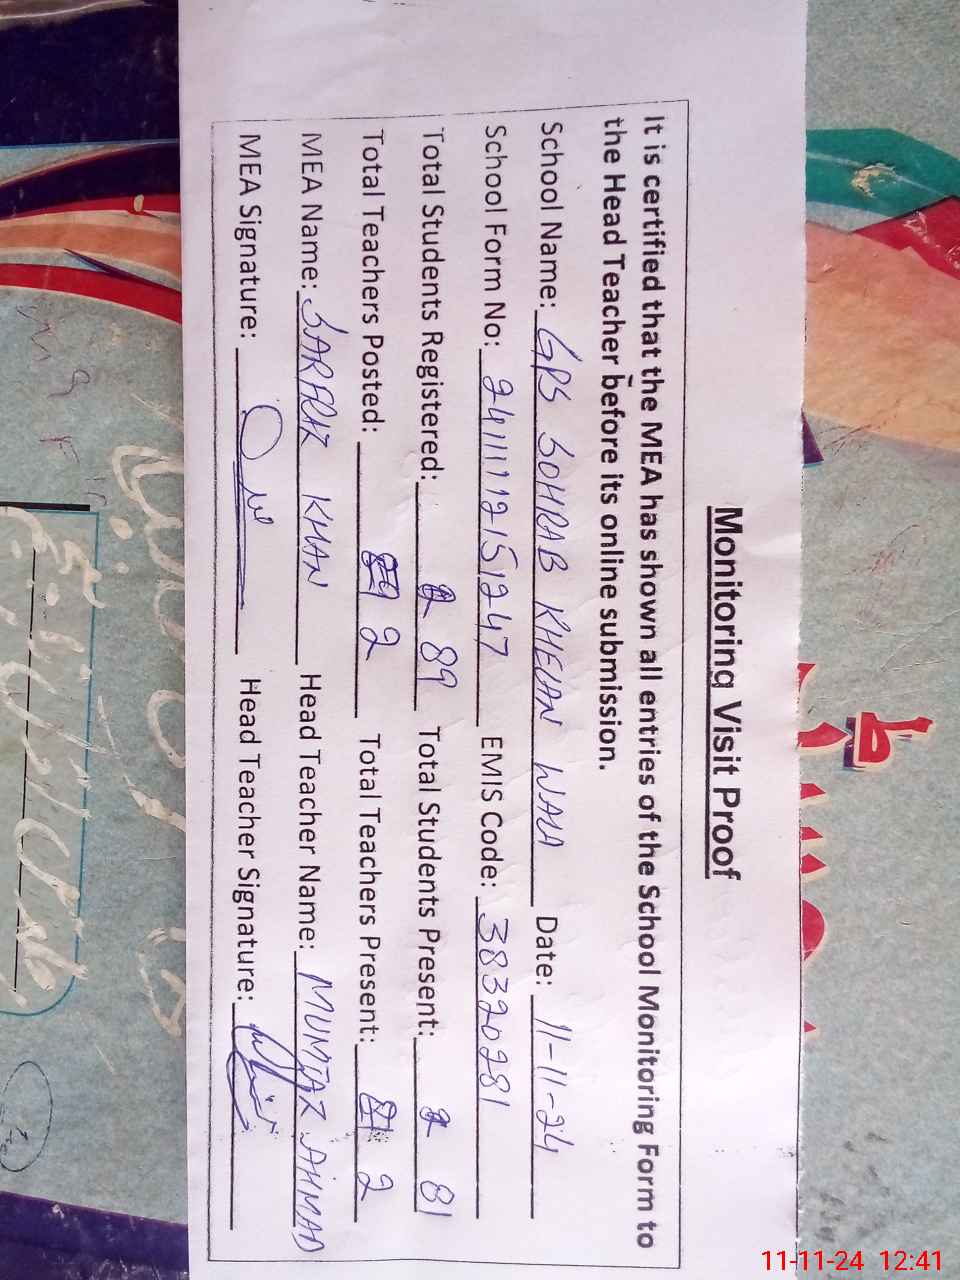 Monitoring Visit Proof
It is certified that the MEA has shown all entries of the School Monitoring Form to
the Head Teacher before its online submission.
School Name: GPS SOHRAB KHELAN WALA Date: 11-11-24
School Form No: 2411112151247 EMIS Code: 38320281
Total Students Registered: 89 Total Students Present: 81
Total Teachers Posted: 2 Total Teachers Present: 2
MEA Name: SARFRAZ KHAN Head Teacher Name: MUMTAZ AHMAD
MEA Signature: Head Teacher Signature:
11-11-24 12:41